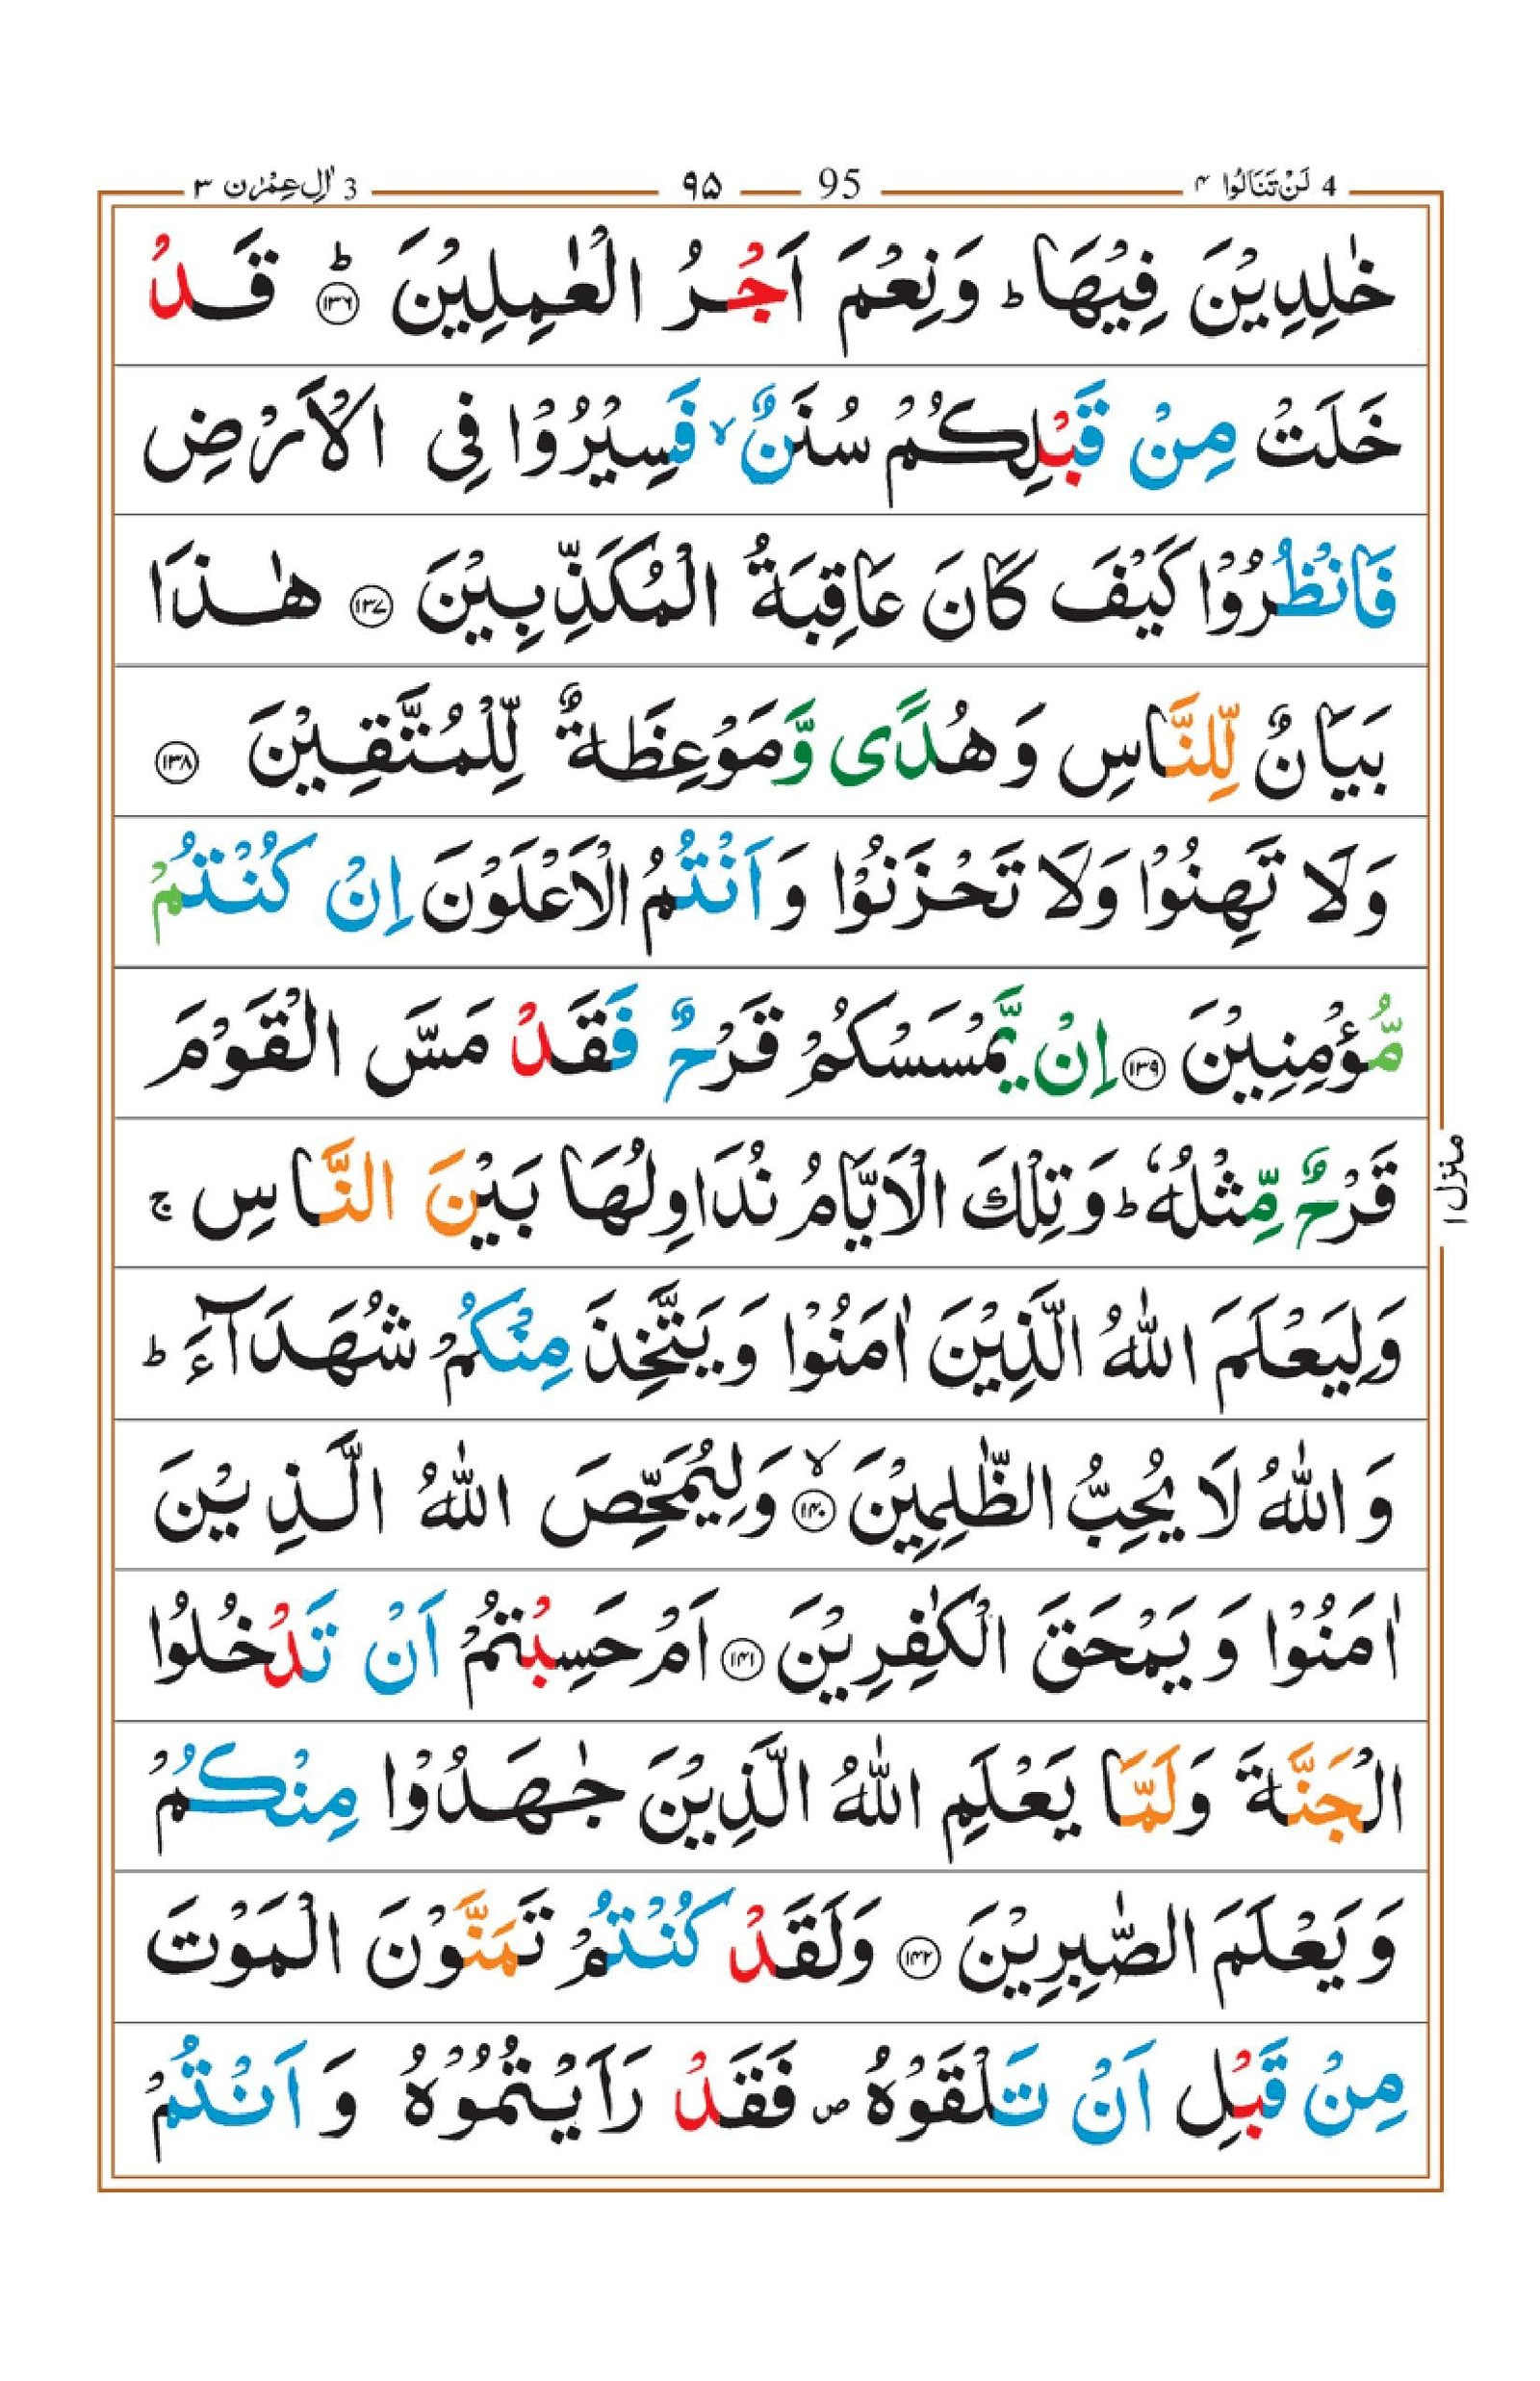 4 لَنْ تَنَالُوا ۴ 95 ۹۵ 3 اٰلِ عِمْرٰن ۳
خٰلِدِيْنَ فِيْهَا ؕ وَنِعْمَ اَجْرُ الْعٰمِلِيْنَ ؕ﴿۱۳۶﴾ قَدْ
خَلَتْ مِنْ قَبْلِكُمْ سُنَنٌ ۙ فَسِيْرُوْا فِى الْاَرْضِ
فَانْظُرُوْا كَيْفَ كَانَ عَاقِبَةُ الْمُكَذِّبِيْنَ ﴿۱۳۷﴾ هٰذَا
بَيَانٌ لِّلنَّاسِ وَهُدًى وَّمَوْعِظَةٌ لِّلْمُتَّقِيْنَ ﴿۱۳۸﴾
وَلَا تَهِنُوْا وَلَا تَحْزَنُوْا وَاَنْتُمُ الْاَعْلَوْنَ اِنْ كُنْتُمْ
مُّؤْمِنِيْنَ ﴿۱۳۹﴾ اِنْ يَّمْسَسْكُمْ قَرْحٌ فَقَدْ مَسَّ الْقَوْمَ
قَرْحٌ مِّثْلُهٗ ؕ وَتِلْكَ الْاَيَّامُ نُدَاوِلُهَا بَيْنَ النَّاسِ ۚ
وَلِيَعْلَمَ اللّٰهُ الَّذِيْنَ اٰمَنُوْا وَيَتَّخِذَ مِنْكُمْ شُهَدَآءَ ؕ
وَاللّٰهُ لَا يُحِبُّ الظّٰلِمِيْنَ ۙ﴿۱۴۰﴾ وَلِيُمَحِّصَ اللّٰهُ الَّذِيْنَ
اٰمَنُوْا وَيَمْحَقَ الْكٰفِرِيْنَ ﴿۱۴۱﴾ اَمْ حَسِبْتُمْ اَنْ تَدْخُلُوا
الْجَنَّةَ وَلَمَّا يَعْلَمِ اللّٰهُ الَّذِيْنَ جٰهَدُوْا مِنْكُمْ
وَيَعْلَمَ الصّٰبِرِيْنَ ﴿۱۴۲﴾ وَلَقَدْ كُنْتُمْ تَمَنَّوْنَ الْمَوْتَ
مِنْ قَبْلِ اَنْ تَلْقَوْهُ ۪ فَقَدْ رَاَيْتُمُوْهُ وَاَنْتُمْ
منزل ۱